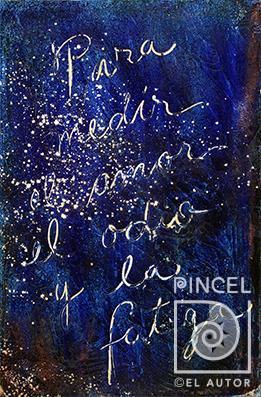 Para
medir
el amor
el odio
y la
fatiga
PINCEL
©EL AUTOR